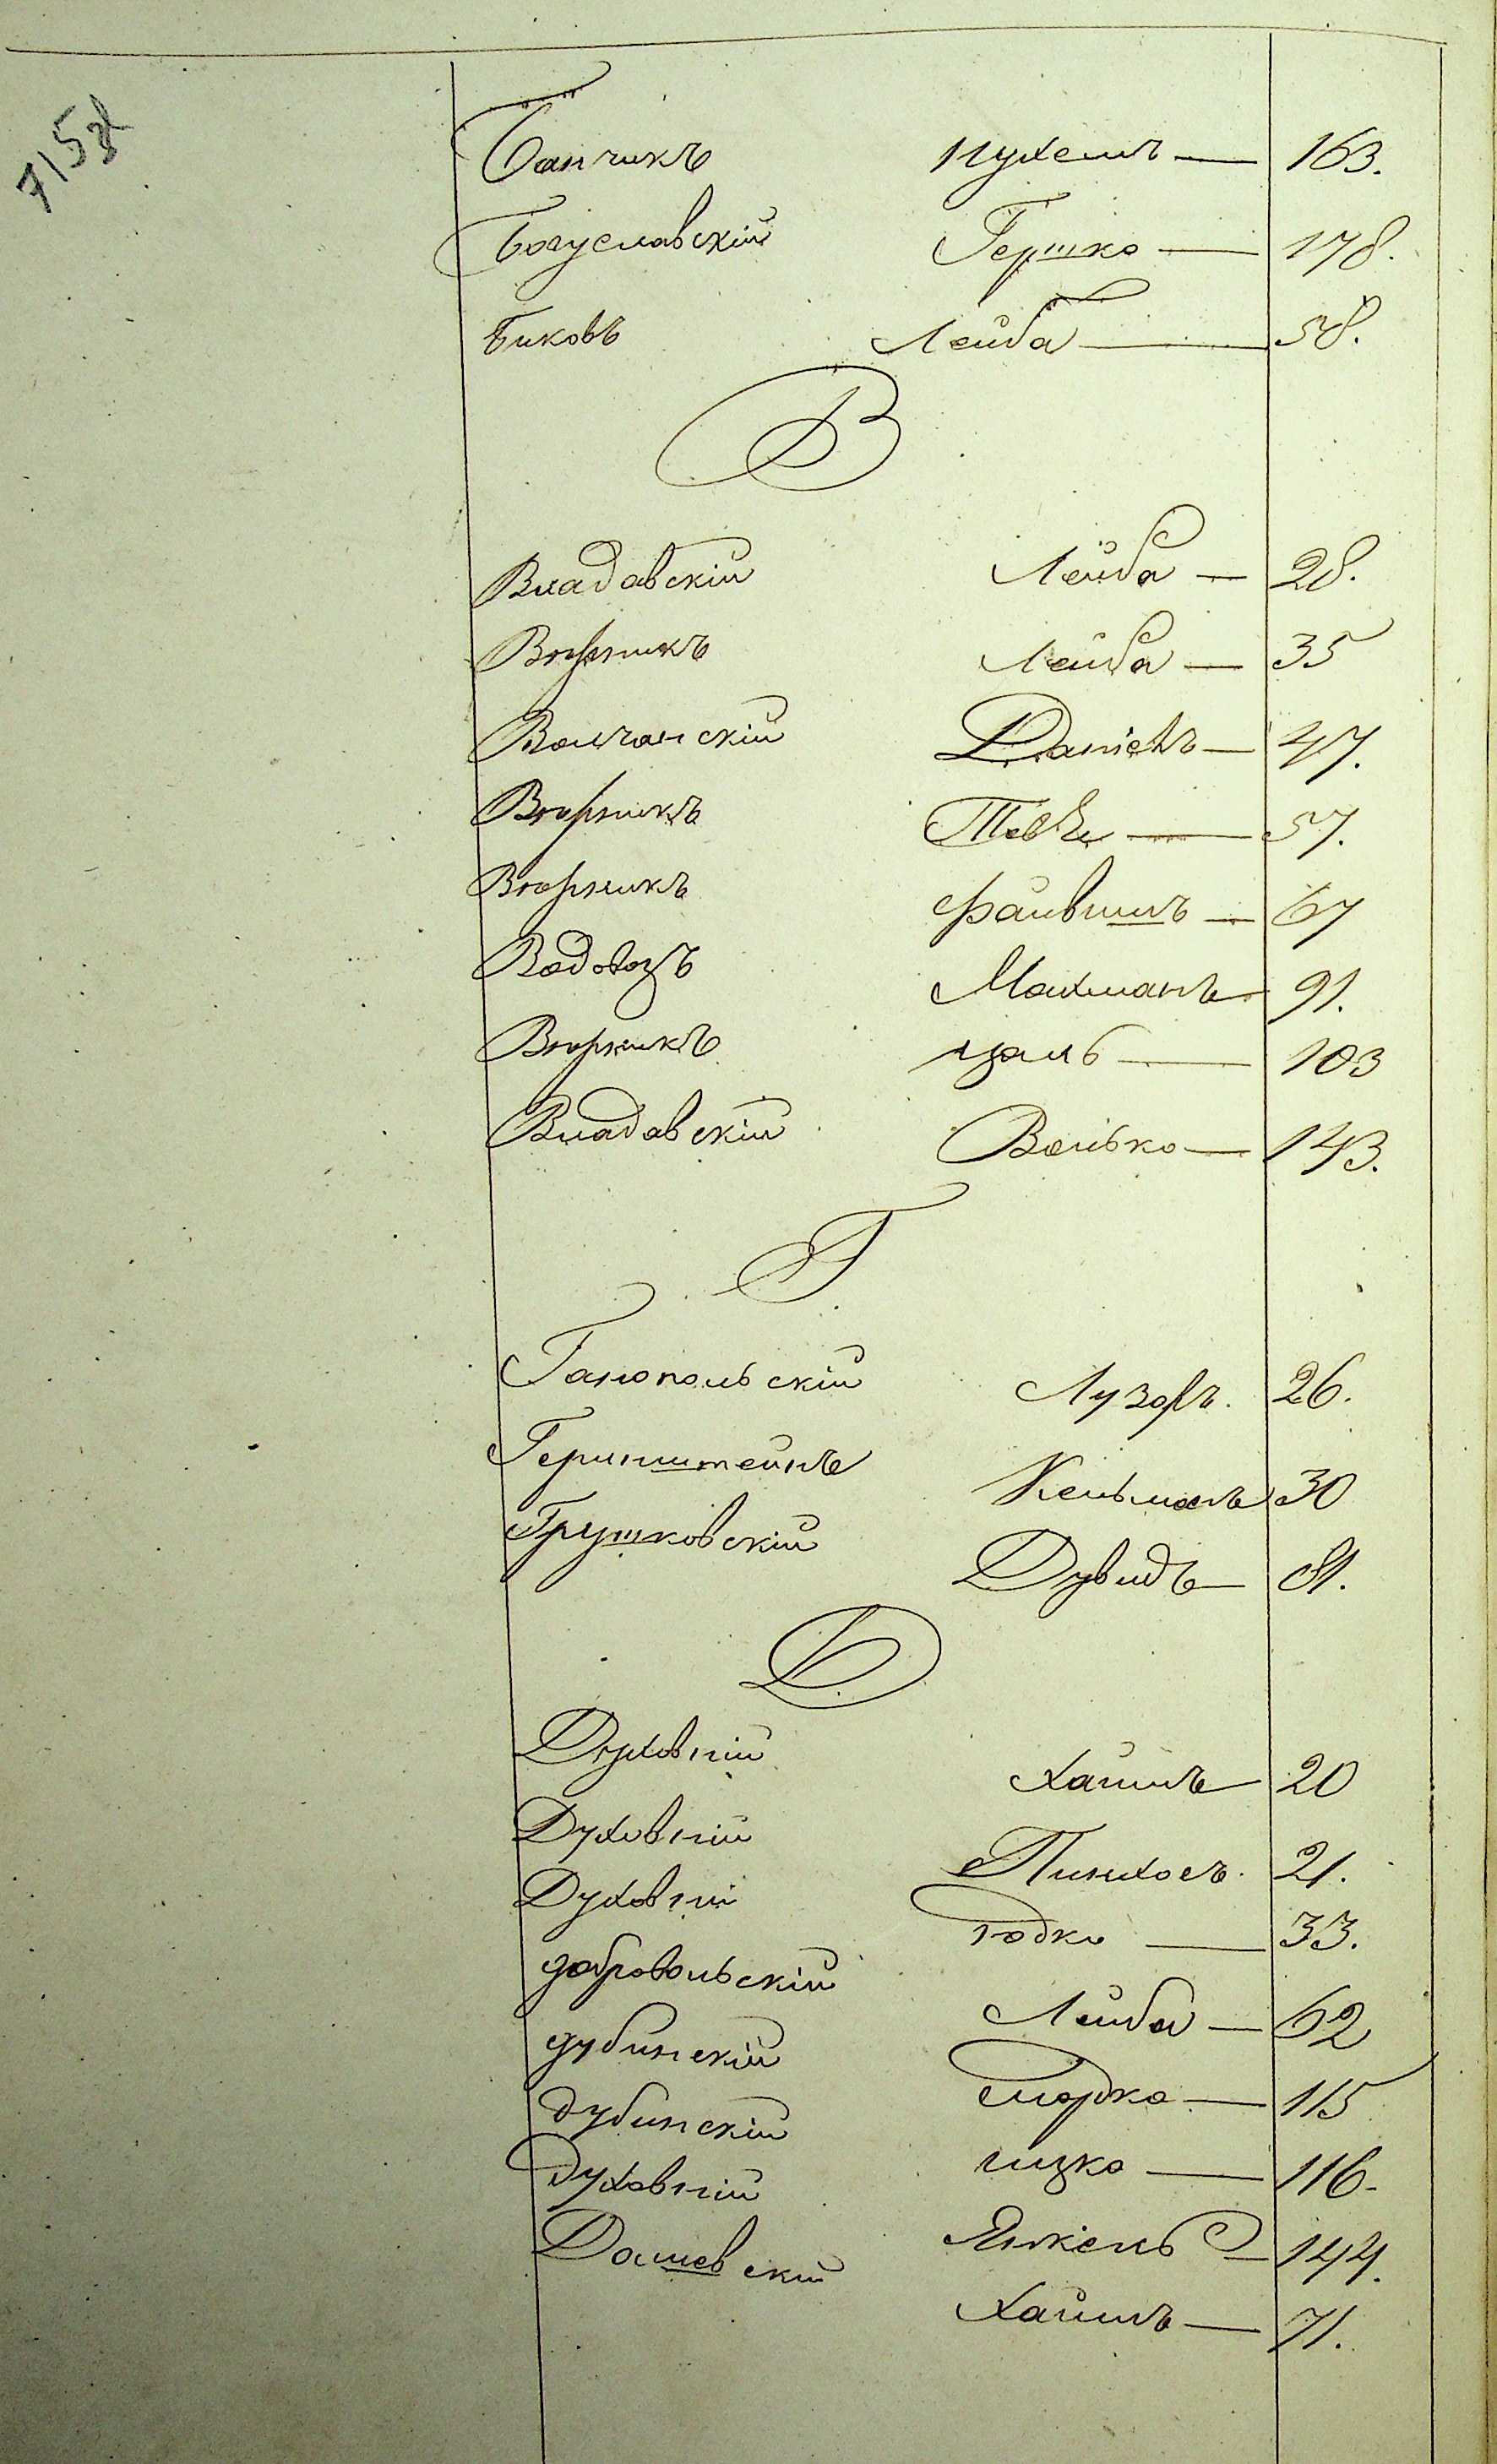 715 зв
Банчикъ Нухемъ — 163.
Богуславскій Гершко — 178.
Биковъ Лейба — 58.
В
Владавскій Лейба — 28.
Вторникъ Лейба — 35
Волчанскій Даніелъ — 47.
Вторникъ Товье — 57.
Вторникъ Файвишъ — 67
Водовозъ Нахманъ 91.
Вторникъ Цаль — 103
Владавскій Волько — 143.
Г
Ганопольскій Лузоръ. 26.
Геринштейнъ Кельманъ 30
Грушковскій Дувидъ — 81.
Д
Духовній Хаимъ — 20
Духовній Пинхосъ. 21.
Духовній Юдко — 33.
Добровольскій Лейба — 62
Дубинскій Шорко — 115
Дубинскій Ицко — 116.
Духовній Янкель — 144.
Дашевскій Хаимъ — 71.